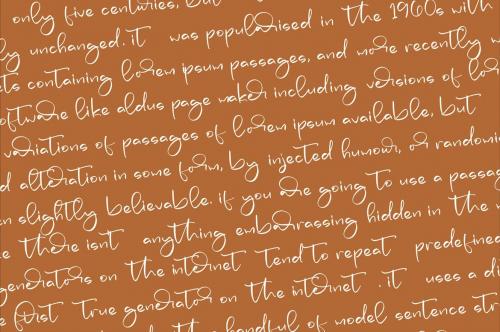 only five centuries, but
unchanged. it was popularised in the 1960s with
containing lorem ipsum passages, and more recently
software like aldus page maker including versions of
variations of passages of lorem ipsum available, but
alteration in some form, by injected humour, or
slightly believable. if you are going to use a
there isn't anything embarrassing hidden in the
generators on the internet tend to repeat
first true generator on the internet. it uses a
handful of model sentence